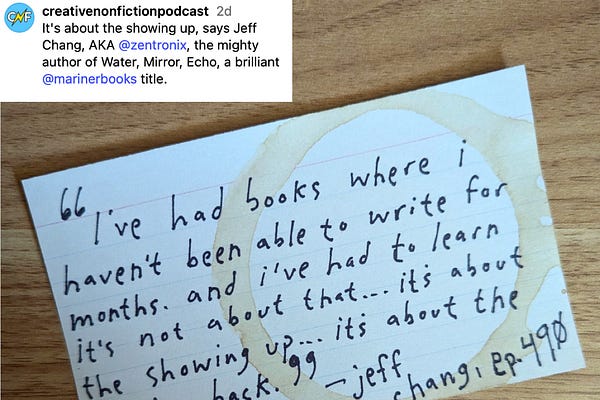 creativenonfictionpodcast 2d
It's about the showing up, says Jeff
Chang, AKA @zentronix, the mighty
author of Water, Mirror, Echo, a brilliant
@marinerbooks title.
CNF
“I've had books where i
haven't been able to write for
months. and i've had to learn
it's not about that... it's about
the showing up... its about the
back.” — jeff
chang, ep. 490